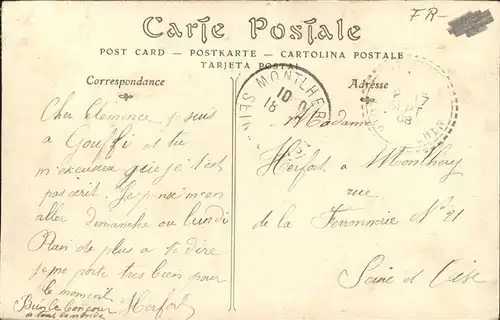 FR-
Carte Postale
POST CARD — POSTKARTE — CARTOLINA POSTALE
TARJETA POSTAL
Correspondance
Cher Clemence je suis
a Gouffi et tu
m'excusera que je t'est
pas écrit. Je pense m'en
aller dimanche ou lundi
Rien de plus a te dire
je me porte tres bien pour
le moment
Bien le bonjour
a tout le monde
Herfort
MONTLHERY
10
18
Adresse
08
Madame
Herfort a Montlhery
rue
de la Ferronnerie No 21
Seine et Oise